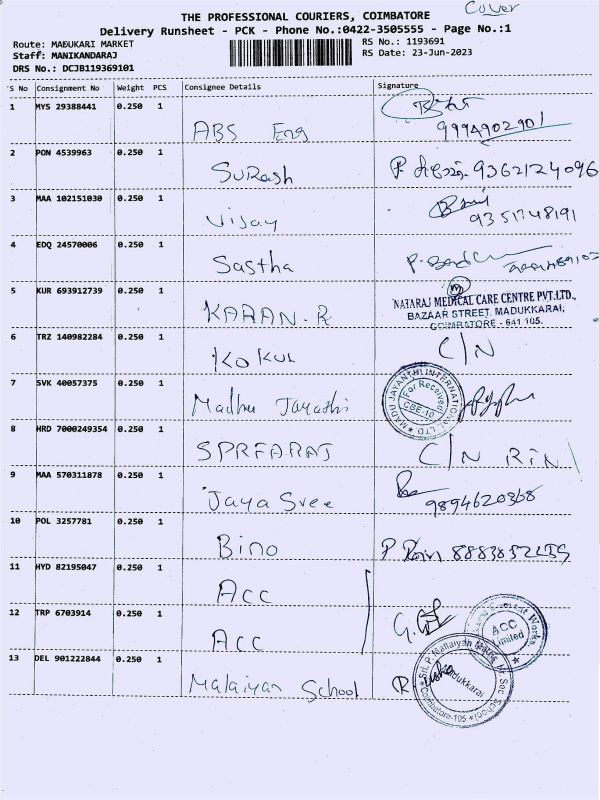 Cover
THE PROFESSIONAL COURIERS, COIMBATORE
Delivery Runsheet - PCK - Phone No.:0422-3505555 - Page No.:1
Route: MADUKARI MARKET
RS No.: 1193691
Staff: MANIKANDARAJ
RS Date: 23-Jun-2023
DRS No.: DCJB119369101
S No Consignment No Weight PCS Consignee Details Signature
1 MYS 29388441 0.250 1 ABS Eng 9994902901
2 PON 4539963 0.250 1 SuResh P. 9362124096
3 MAA 102151030 0.250 1 Vijay 9351748191
4 EDQ 24570006 0.250 1 Sastha
5 KUR 693912739 0.250 1 KARAN.R
NATARAJ MEDICAL CARE CENTRE PVT.LTD.,
BAZAAR STREET, MADUKKARAI,
COIMBATORE - 641 105.
6 TRZ 140982284 0.250 1 KOKUL C/N
7 SVK 40057375 0.250 1 Madhu Jayanthi
MADUJAYANTHI INTERNATIONAL LTD.
For Received
CBE-10
8 HRD 7000249354 0.250 1 C/N
9 MAA 570311878 0.250 1 Jaya Sree 9894620368
10 POL 3257781 0.250 1 Bino
11 HYD 82195047 0.250 1 Acc
12 TRP 6703914 0.250 1 Acc
ACC
Limited
Works
13 DEL 901222844 0.250 1 Malaiyan School
Sri. P. Mallaiyan School
Madukkarai
Coimbatore-105